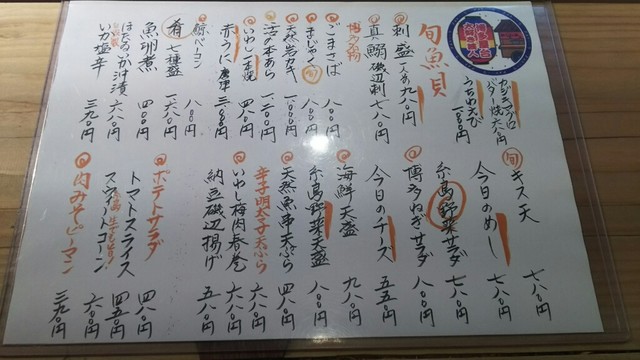 旬魚貝
カジキマグロ
バター焼 六八〇円
うちわえび
一八〇〇円
刺盛 一人前 九八〇円
真鰯磯辺刺 七八〇円
博多名物
ごまさば 八〇〇円
まじゃく 旬 八〇〇円
天然岩カキ 一〇〇〇円
活あわび
いわし一本焼
赤うに 唐津 三八〇〇円
鯨ベーコン 八〇〇円
肴 七種盛 一六八〇円
魚胡煮 四〇〇円
ほたるいか沖漬 六八〇円
自家製
いか塩辛 三九〇円
旬 キス天 七八〇円
今日のめし 七八〇円
糸島野菜サラダ 七八〇円
博多ねぎサラダ 八〇〇円
今日のチーズ 五五〇円
海鮮天盛 九八〇円
糸島野菜天盛 八〇〇円
天然魚串天ぷら 四八〇円
辛子明太子天ぷら 六八〇円
いわし梅肉春巻 六八〇円
納豆磯辺揚げ 五八〇円
ポテトサラダ 四八〇円
トマトスライス 四五〇円
スウィートコーン 六〇〇円
肉みそピーマン 三九〇円